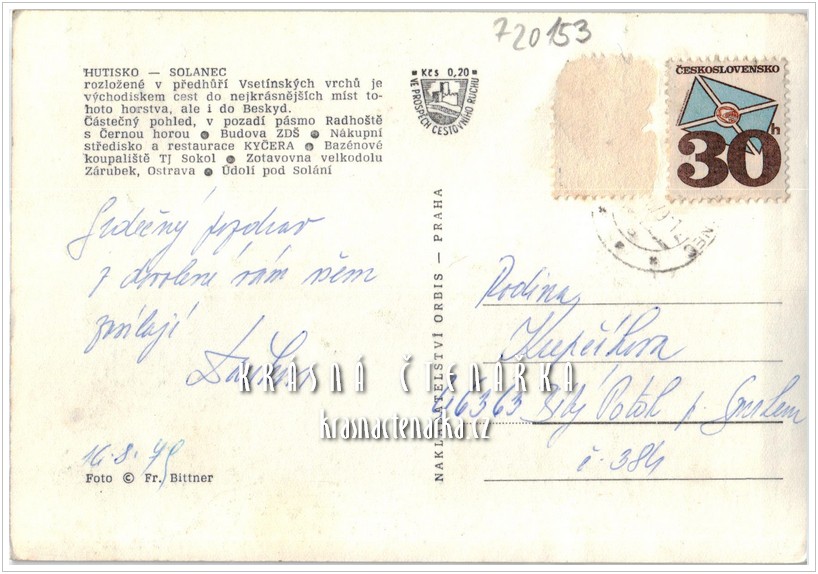 720153
HUTISKO — SOLANEC
rozložené v předhůří Vsetínských vrchů je
východiskem cest do nejkrásnějších míst to-
hoto horstva, ale i do Beskyd.
Částečný pohled, v pozadí pásmo Radhoště
s Černou horou ● Budova ZDŠ ● Nákupní
středisko a restaurace KYČERA ● Bazénové
koupaliště TJ Sokol ● Zotavovna velkodolu
Zárubek, Ostrava ● Údolí pod Solání
Kčs 0,20
VE PROSPĚCH CESTOVNÍHO RUCHU
ČESKOSLOVENSKO
30h
Srdečný pozdrav
z dovolené vám všem
posílají
16.8.79
Foto © Fr. Bittner
NAKLADATELSTVÍ ORBIS — PRAHA
Rodina
46363 Potok p.
č. 384
KRÁSNÁ ČTENÁŘKA
krasnactenarka.cz